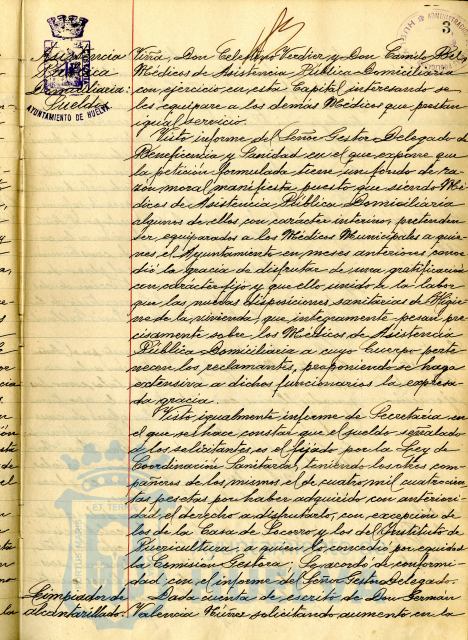 3
AYUNTAMIENTO DE HUELVA
Asistencia
Pública
Domiciliaria:
Sueldo
Viña, Don Celestino Verdier y Don Camilo
Médicos de Asistencia Pública Domiciliaria
con ejercicio en esta Capital interesando se
les equipare a los demás Médicos que prestan
igual servicio.
Visto informe del Señor Gestor Delegado de
Beneficencia y Sanidad en el que expone que
la petición formulada tiene un fondo de ra-
zón moral manifiesta puesto que siendo Mé-
dicos de Asistencia Pública Domiciliaria
algunos de ellos con carácter interino, pretenden
ser equiparados a los Médicos Municipales a quie-
nes el Ayuntamiento en meses anteriores conce-
dió la gracia de disfrutar de una gratificación
con carácter fijo y que ello unido a la labor
que las nuevas disposiciones sanitarias de Higie-
ne de la vivienda, que integramente pesan pre-
cisamente sobre los Médicos de Asistencia
Pública Domiciliaria a cuyo Cuerpo perte-
necen los reclamantes, proponiendo se haga
extensiva a dichos funcionarios la expresa-
da gracia.
Visto igualmente informe de Secretaría en
el que se hace constar que el sueldo señalado
a los solicitantes es el fijado por la Ley de
Coordinación Sanitaria, teniendo los otros com-
pañeros de los mismos el de cuatro mil cuatrocien-
tas pesetas por haber adquirido con anteriori-
dad el derecho a disfrutarlo, con excepción de
los de la Casa de Socorro y los del Instituto de
Puericultura a quien lo concedió por equidad
la Comisión Gestora; Se acordó de conformi-
dad con el informe del Señor Gestor Delegado.
Limpiador de
alcantarillado.
Dada cuenta de escrito de Don Germán
Valencia Núñez solicitando aumento en la